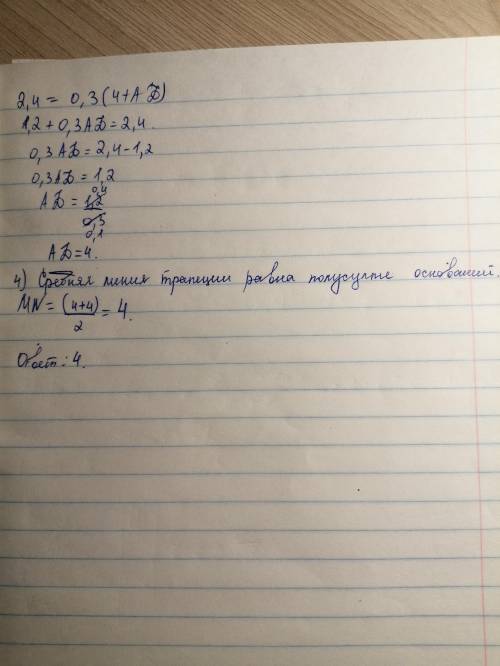 2,4 = 0,3(4+АБ)
1,2 + 0,3АБ = 2,4.
0,3АБ = 2,4-1,2
0,3АБ = 1,2
0,4
АБ = 1,2
0,3
0,1
АБ = 4.
4) Средняя линия трапеции равна полусумме оснований.
MN = (4+4)
2
= 4.
Ответ: 4.